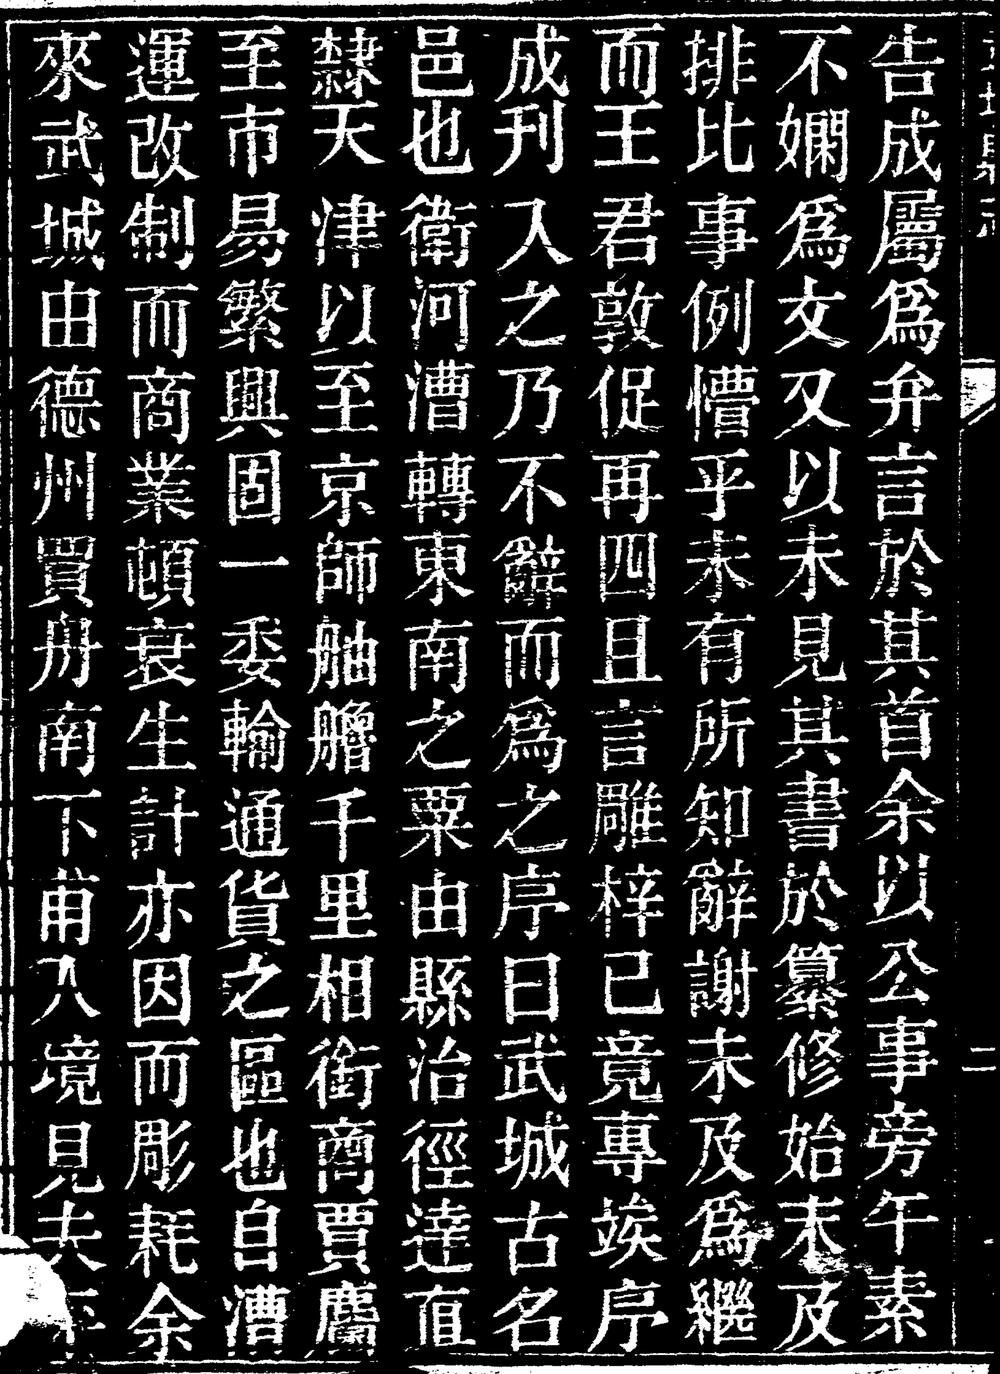 告成屬爲弁言於其首余以公事旁午素
不嫻爲文又以未見其書於纂修始末及
排比事例懵乎未有所知辭謝未及爲繼
而王君敦促再四且言雕梓已竟專竢序
成刊入之乃不辭而爲之序曰武城古名
邑也衛河漕轉東南之粟由縣治徑達直
隸天津以至京師舳艫千里相銜商賈麕
至市易繁興固一委輸通貨之區也自漕
運改制而商業頓衰生計亦因而彫耗余
來武城由德州買舟南下甫入境見夫
二